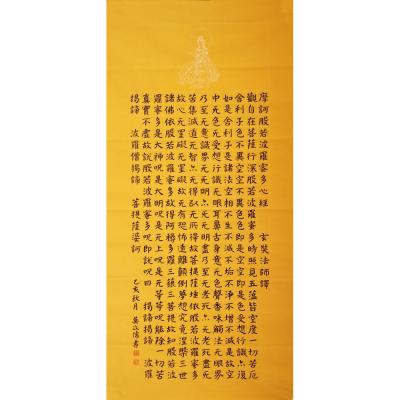 摩訶般若波羅蜜多心經 玄奘法師譯
觀自在菩薩行深般若波羅蜜多時照見五蘊皆空度一切苦厄
舍利子色不異空空不異色色即是空空即是色受想行識亦復
如是舍利子是諸法空相不生不滅不垢不淨不增不減是故空
中无色无受想行識无眼耳鼻舌身意无色聲香味觸法无眼界
乃至无意識界无无明亦无无明盡乃至无老死亦无老死盡无
苦集滅道无智亦无得以无所得故菩提薩埵依般若波羅蜜多
故心无罣礙无罣礙故无有恐怖遠離顛倒夢想究竟涅槃三世
諸佛依般若波羅蜜多故得阿耨多羅三藐三菩提故知般若波
羅蜜多是大神呪是大明呪是无上呪是无等等呪能除一切苦
真實不虛故說般若波羅蜜多呪即說呪曰 揭諦揭諦 波羅
揭諦 波羅僧揭諦 菩提薩婆訶
乙亥秋月